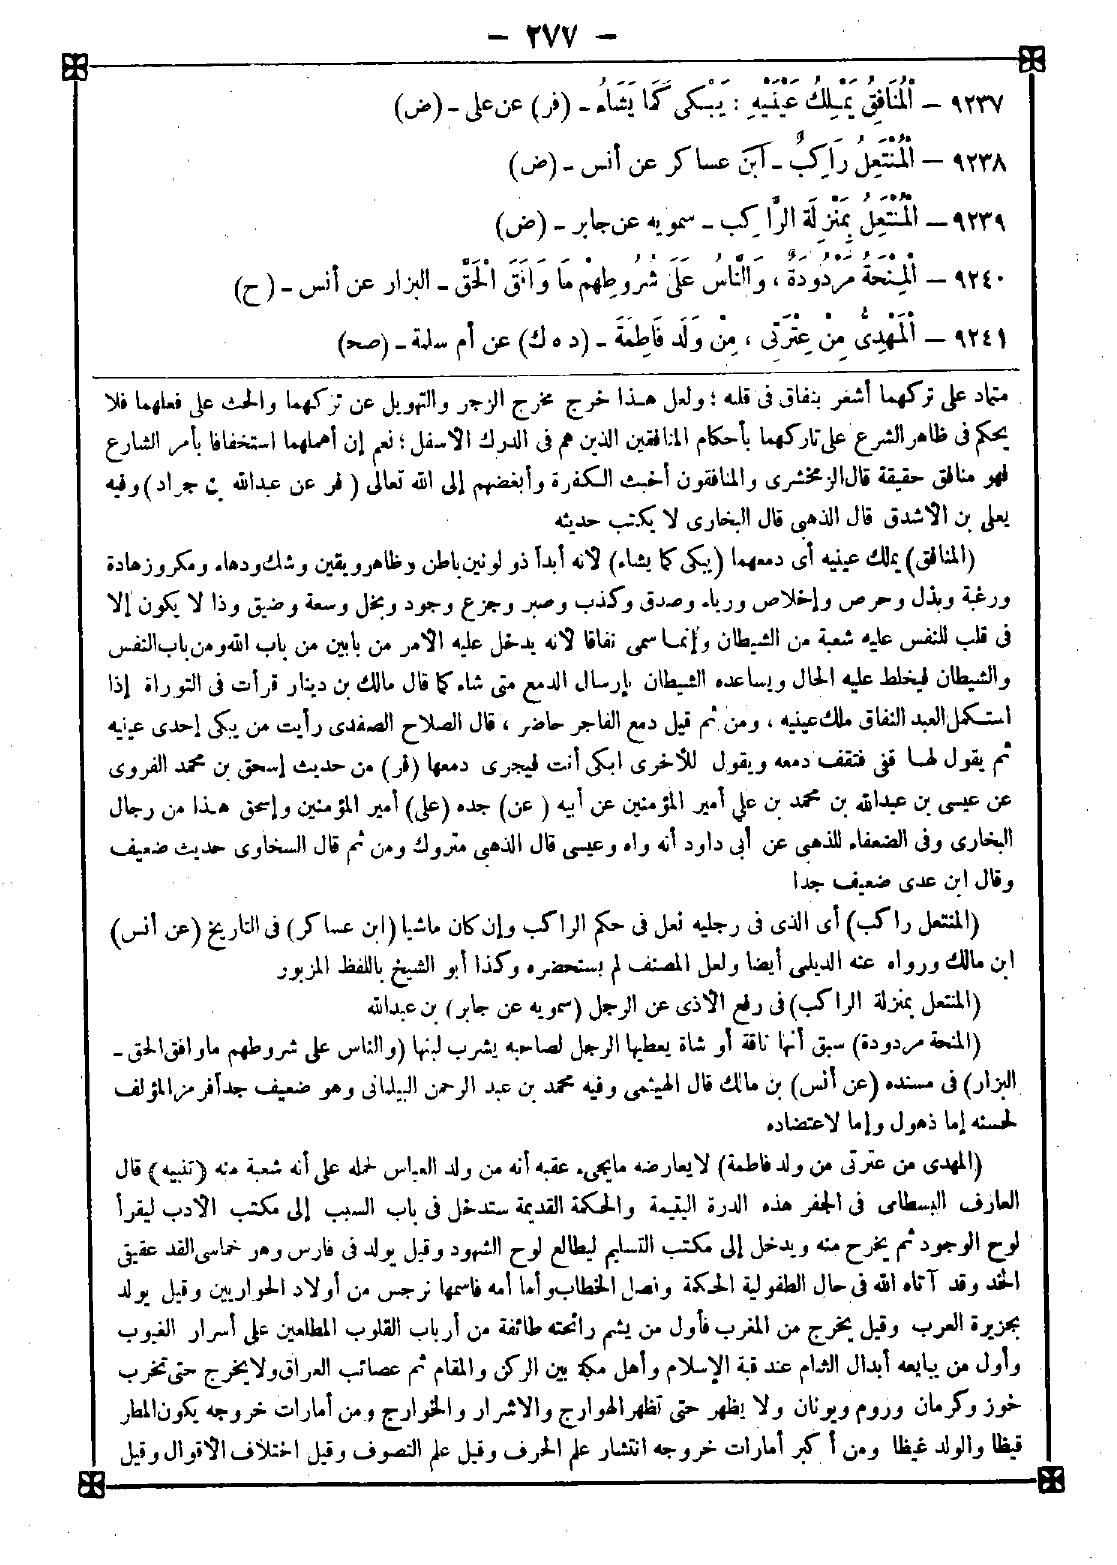 – ٢٧٧ –
٩٢٣٧ – الْمُنَافِقُ يَمْلِكُ عَيْنَيْهِ : يَبْكِى كَمَا يَشَاءُ – (فر) عن على – (ض)
٩٢٣٨ – الْمُنْتَعِلُ رَاكِبٌ – ابن عساكر عن أنس – (ض)
٩٢٣٩ – الْمُنْتَعِلُ بِمَنْزِلَةِ الرَّاكِبِ – سمويه عن جابر – (ض)
٩٢٤٠ – الْمِنْحَةُ مَرْدُودَةٌ ، وَالنَّاسُ عَلَى شُرُوطِهِمْ مَا وَافَقَ الْحَقَّ – البزار عن أنس – (ح)
٩٢٤١ – الْمَهْدِىُّ مِنْ عِتْرَتِى ، مِنْ وَلَدِ فَاطِمَةَ – (د ه ك) عن أم سلمة – (صح)
متماد على تركهما أشعر بنفاق فى قلبه ؛ ولعل هذا خرج مخرج الزجر والتهويل عن تركهما والحث على فعلهما فلا
يحكم فى ظاهر الشرع على تاركهما بأحكام المنافقين الذين هم فى الدرك الأسفل ؛ نعم إن أهملهما استخفافا بأمر الشارع
فهو منافق حقيقة قال الزمخشرى والمنافقون أخبث الكفرة وأبغضهم إلى الله تعالى (فر عن عبدالله بن جراد) وفيه
يعلى بن الأشدق قال الذهبى قال البخارى لا يكتب حديثه
(المنافق) يملك عينيه أى دمعهما (يبكى كما يشاء) لأنه أبدا ذو لونين باطن وظاهر ويقين وشك ودهاء ومكر وزهادة
ورغبة وبذل وحرص وإخلاص ورياء وصدق وكذب وصبر وجزع وجود وبخل وسعة وضيق وذا لا يكون إلا
فى قلب للنفس عليه شعبة من الشيطان وإنما سمى نفاقا لأنه يدخل عليه الأمر من بابين من باب الله ومن باب النفس
والشيطان فيخلط عليه الحال ويساعده الشيطان بإرسال الدمع متى شاء كما قال مالك بن دينار قرأت فى التوراة إذا
استكمل العبد النفاق ملك عينيه ، ومن ثم قيل دمع الفاجر حاضر ، قال الصلاح الصفدى رأيت من يبكى إحدى عينيه
ثم يقول لها قفى فتقف دمعه ويقول للأخرى ابكى أنت فيجرى دمعها (فر) من حديث إسحق بن محمد الفروى
عن عيسى بن عبدالله بن محمد بن على أمير المؤمنين عن أبيه (عن) جده (على) أمير المؤمنين وإسحق هذا من رجال
البخارى وفى الضعفاء للذهبى عن أبى داود أنه واه وعيسى قال الذهبى متروك ومن ثم قال السخاوى حديث ضعيف
وقال ابن عدى ضعيف جدا
(المنتعل راكب) أى الذى فى رجليه نعل فى حكم الراكب وإن كان ماشيا (ابن عساكر) فى التاريخ (عن أنس)
ابن مالك ورواه عنه الديلمى أيضا ولعل المصنف لم يستحضره وكذا أبو الشيخ باللفظ المزبور
(المنتعل بمنزلة الراكب) فى رفع الأذى عن الرجل (سمويه عن جابر) بن عبدالله
(المنحة مردودة) سبق أنها ناقة أو شاة يعطيها الرجل لصاحبه يشرب لبنها (والناس على شروطهم ما وافق الحق –
البزار) فى مسنده (عن أنس) بن مالك قال الهيثمى وفيه محمد بن عبد الرحمن البيلمانى وهو ضعيف جدا فرمز المؤلف
لحسنه إما ذهول وإما لاعتضاده
(المهدى من عترتى من ولد فاطمة) لا يعارضه مايجىء عقبه أنه من ولد العباس لحمله على أنه شعبة منه (تنبيه) قال
العارف البسطامى فى الجفر هذه الدرة اليتيمة والحكمة القديمة ستدخل فى باب السبب إلى مكتب الأدب ليقرأ
لوح الوجود ثم يخرج منه ويدخل إلى مكتب التسليم ليطالع لوح الشهود وقيل يولد فى فارس وهو خماسى القد عقيقى
الخد وقد آتاه الله فى حال الطفولية الحكمة وفصل الخطاب وأما أمه فاسمها نرجس من أولاد الحواريين وقيل يولد
بجزيرة العرب وقيل يخرج من المغرب فأول من يشم رائحته طائفة من أرباب القلوب المطلعين على أسرار الغيوب
وأول من يبايعه أبدال الشام عند قبة الإسلام وأهل مكة بين الركن والمقام ثم عصائب العراق ولا يخرج حتى تخرب
خوز وكرمان وروم ويونان ولا يظهر حتى تظهر الهوارج والأشرار والخوارج ومن أمارات خروجه يكون المطر
قيظا والولد غيظا ومن أكبر أمارات خروجه انتشار علم الحرف وقيل علم التصوف وقيل اختلاف الأقوال وقيل